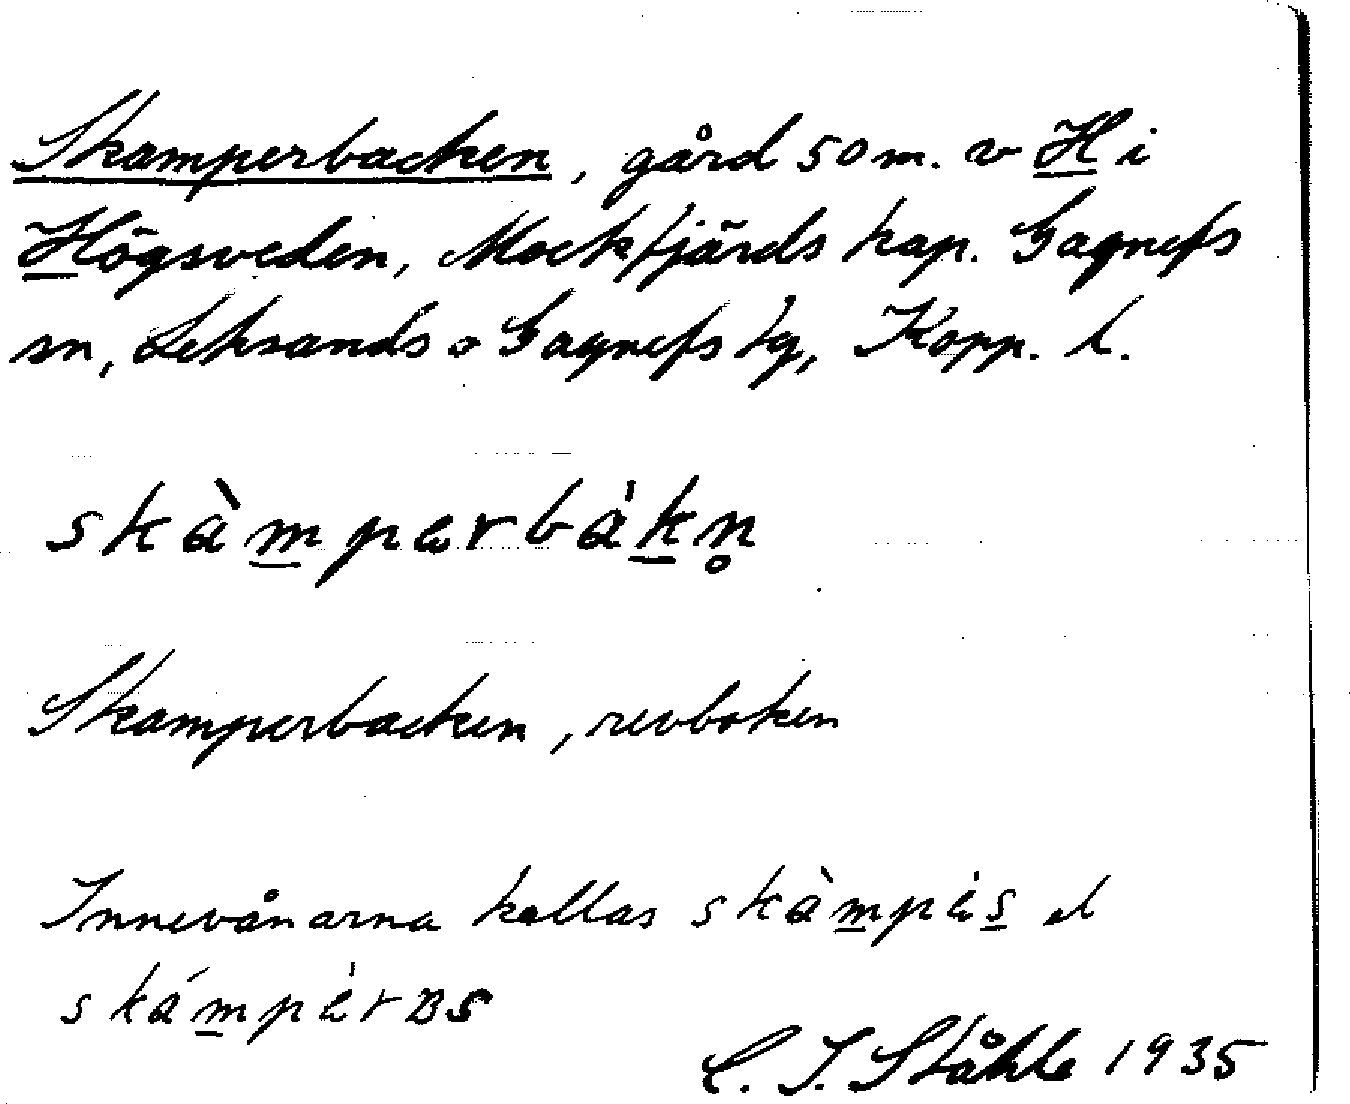 Skamperbacken, gård 50 m. v H i
Högsveden, Mockfjärds kap. Gagnefs
sn, Leksands o Gagnefs tg, Kopp. l.
skàmpərbákn̥
Skamperbacken, revboken
Innevånarna kallas skàmpəs el
skámpərBs
C. I. Ståhle 1935